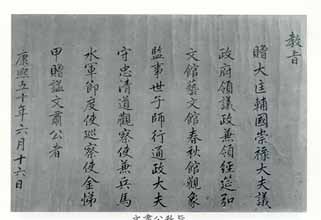 教旨
贈大匡輔國崇祿大夫議
政府領議政兼領經筵弘
文館藝文館春秋館觀象
監事世子師行通政大夫
守忠清道觀察使兼兵馬
水軍節度使巡察使金悌
甲贈諡文肅公者
康熙五十年六月十六日
文肅公敎旨